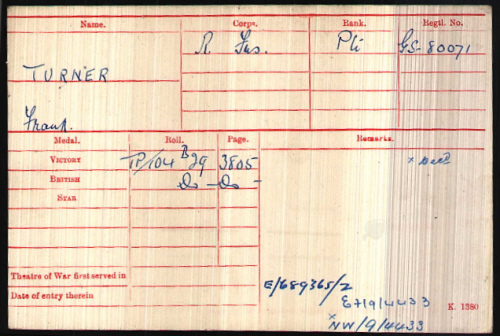 Name. Corps. Rank. Regtl. No.
R. Fus. Pte GS-80071
TURNER
Frank.
Medal. Roll. Page. Remarks.
VICTORY TP/104 B29 3805 × Decd
BRITISH Do - Do -
STAR
Theatre of War first served in
Date of entry therein
E/689365/2
K. 1380
×NW/9/4433